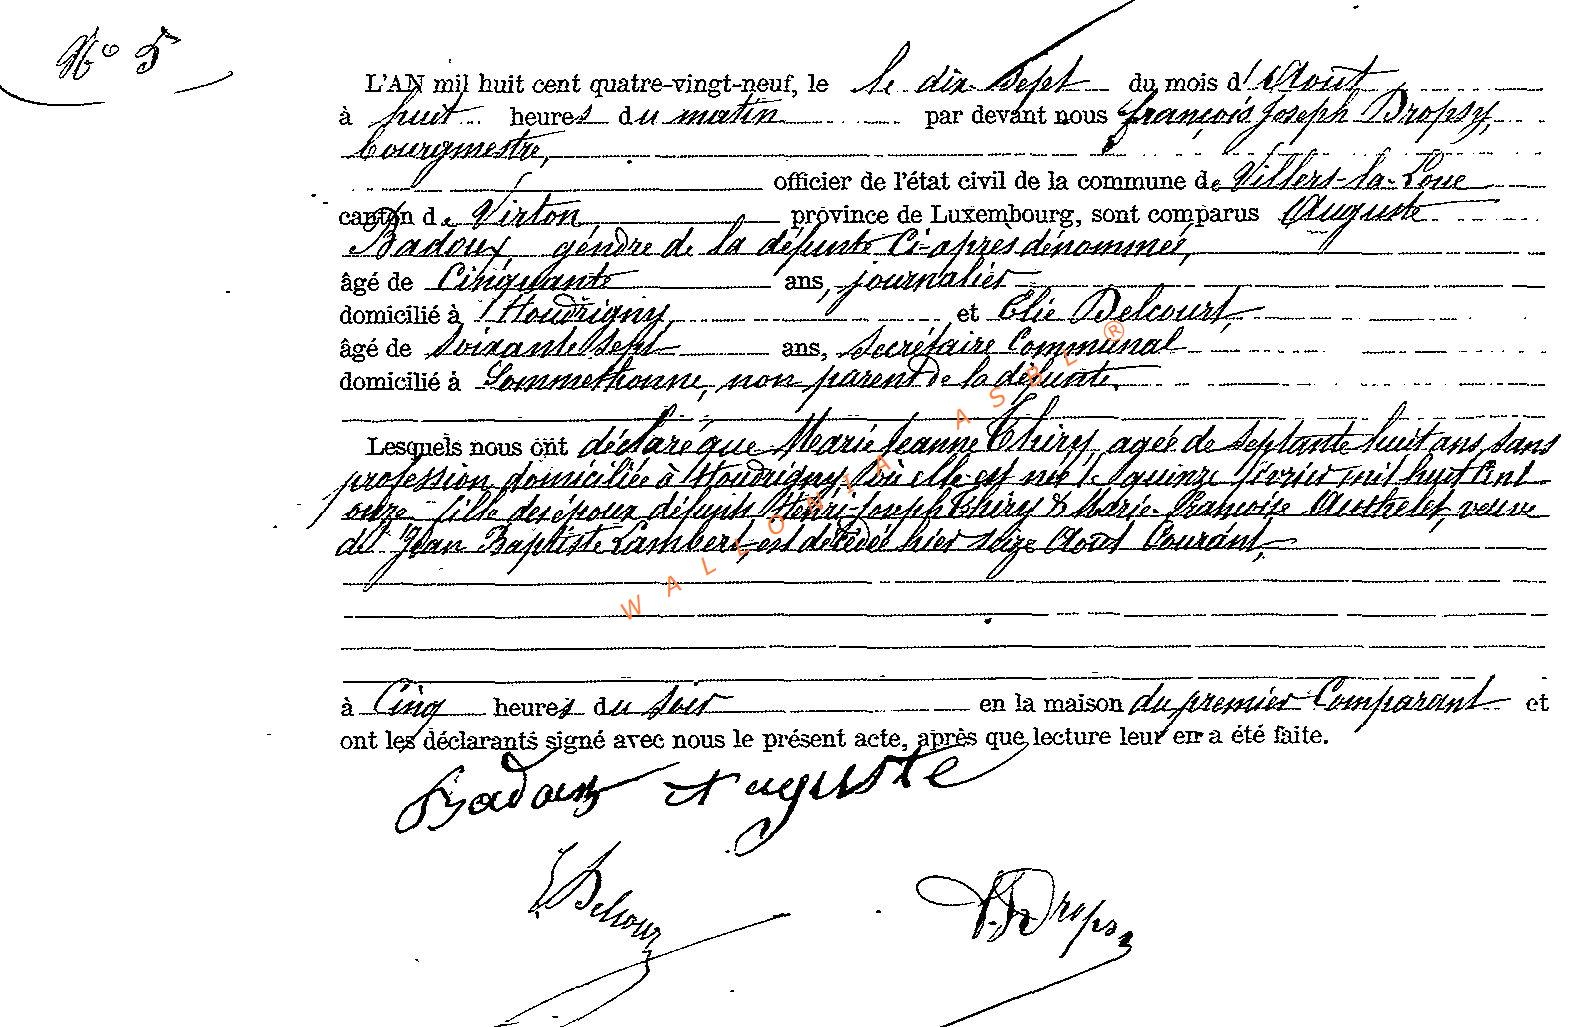 N° 5
L'AN mil huit cent quatre-vingt-neuf, le le dix Sept du mois d' Août
à huit heures du matin par devant nous françois Joseph Dropsy,
bourgmestre,
officier de l'état civil de la commune de Villers-la-Loue
canton de Virton province de Luxembourg, sont comparus Auguste
Badoux, gendre de la défunte Ci-après dénommée,
âgé de Cinquante ans, journalier
domicilié à Houdrigny, et Elie Delcourt,
âgé de Soixante Sept ans, Secrétaire Communal
domicilié à Sommethonne, non parent de la défunte.
Lesquels nous ont déclaré que Marie Jeanne Thiry, agée de Septante huit ans, sans
profession, domiciliée à Houdrigny où elle est née le quinze février mil huit Cent
onze fille des époux défunts Henri-Joseph Thiry & Marie-Françoise veuve
de Jean Baptiste Lambert, est décédée hier seize Août Courant,
à Cinq heures du soir en la maison du premier Comparant et
ont les déclarants signé avec nous le présent acte, après que lecture leur en a été faite.
Badoux Auguste
E Delcourt
F. J. Dropsy
WALLONIA ASBL ®